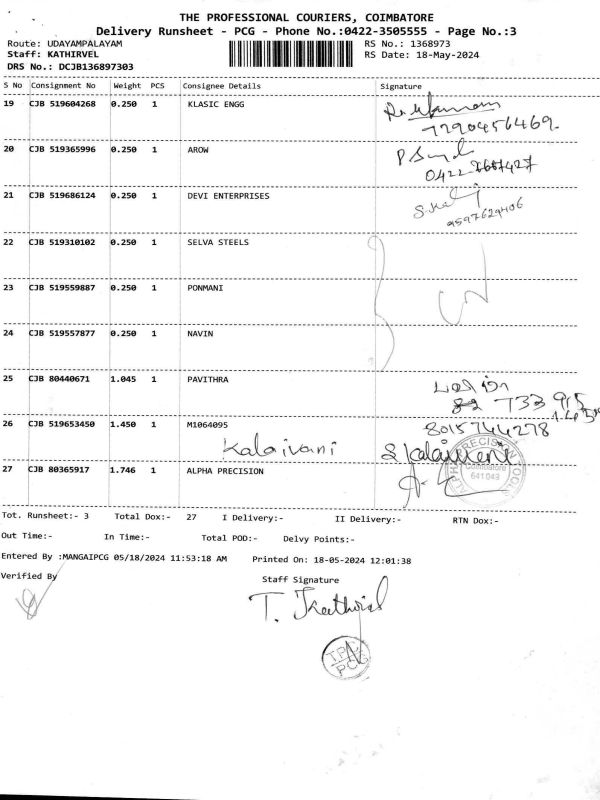 THE PROFESSIONAL COURIERS, COIMBATORE
Delivery Runsheet - PCG - Phone No.:0422-3505555 - Page No.:3
Route: UDAYAMPALAYAM RS No.: 1368973
Staff: KATHIRVEL RS Date: 18-May-2024
DRS No.: DCJB136897303
S No Consignment No Weight PCS Consignee Details Signature
19 CJB 519604268 0.250 1 KLASIC ENGG
7290456469.
20 CJB 519365996 0.250 1 AROW
0422
21 CJB 519686124 0.250 1 DEVI ENTERPRISES
9597629406
22 CJB 519310102 0.250 1 SELVA STEELS
23 CJB 519559887 0.250 1 PONMANI
24 CJB 519557877 0.250 1 NAVIN
25 CJB 80440671 1.045 1 PAVITHRA
733 915
26 CJB 519653450 1.450 1 M1064095 8015744278
Kalaivani
27 CJB 80365917 1.746 1 ALPHA PRECISION
Coimbatore
641 049
Tot. Runsheet:- 3 Total Dox:- 27 I Delivery:- II Delivery:- RTN Dox:-
Out Time:- In Time:- Total POD:- Delvy Points:-
Entered By :MANGAIPCG 05/18/2024 11:53:18 AM Printed On: 18-05-2024 12:01:38
Verified By Staff Signature
T. Kathirvel
TPC
PCG